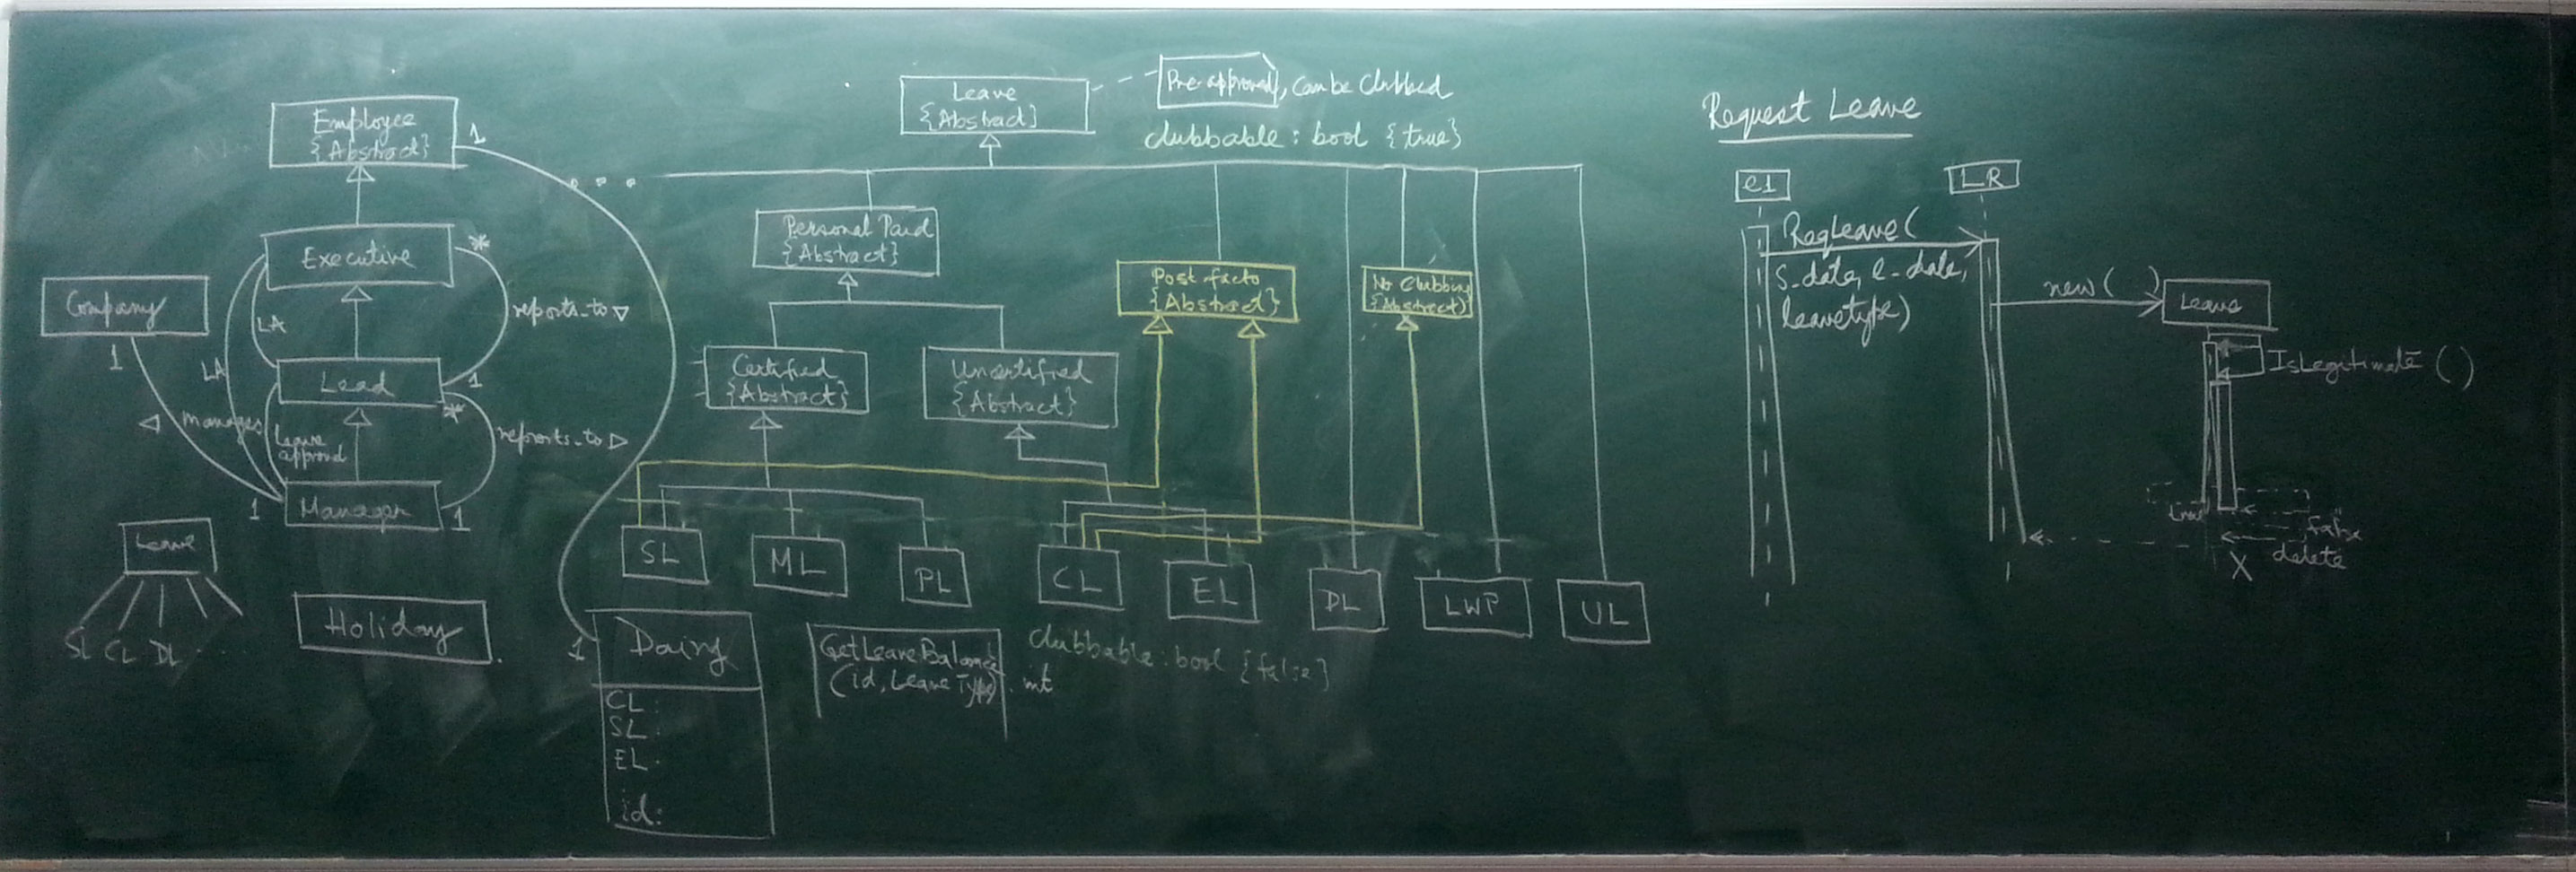 Employee
{Abstract}
1
Executive
*
Company
1
LA
LA
reports_to ▽
Lead
1
*
◁ manages
leave
approval
reports_to ▷
Manager
1
1
Leave
SL CL DL . .
Holiday
Leave
{Abstract}
Pre-approved, Can be Clubbed
clubbable : bool {true}
Personal Paid
{Abstract}
Post facto
{Abstract}
No Clubbing
{Abstract}
Certified
{Abstract}
Uncertified
{Abstract}
SL
ML
PL
CL
EL
DL
LWP
UL
1
Dairy
CL :
SL :
EL .
id:
GetLeaveBalance
(id, Leave Type) : int
clubbable : bool {false}
Request Leave
e1
LR
ReqLeave(
S_date, e_date,
leavetype)
new( )
Leave
IsLegitimate ( )
true
false
delete
X